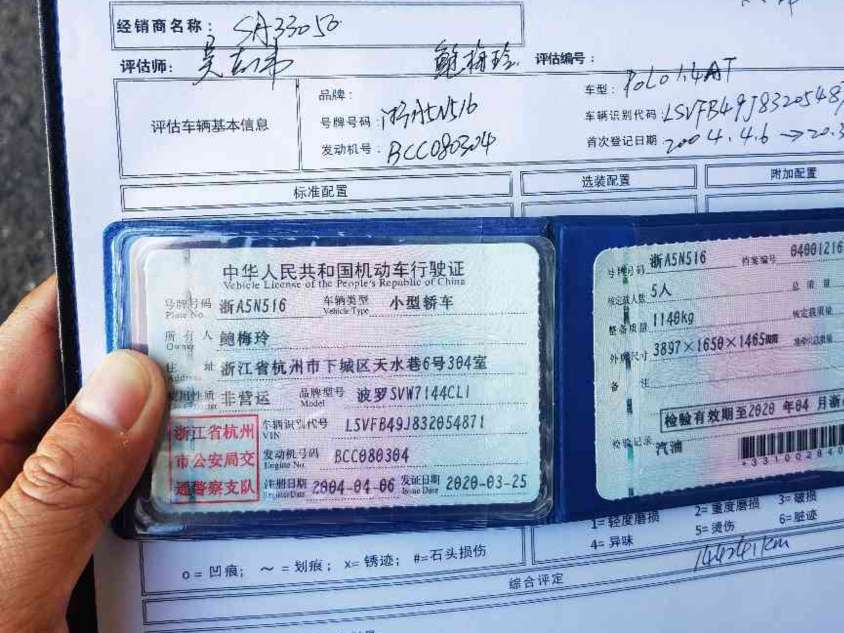 经销商名称： SA33050
评估师： 鲍梅玲 评估编号：
评估车辆基本信息
品牌： 车型： POLO 1.4 AT
号牌号码： 浙A5N516 车辆识别代码： LSVFB49J83205487
发动机号： BCC080304 首次登记日期 2004.4.6 → 20.3
标准配置 选装配置 附加配置
中华人民共和国机动车行驶证
Vehicle License of the People's Republic of China
号牌号码 浙A5N516 车辆类型 小型轿车
Plate No. Vehicle Type
所有人 鲍梅玲
Owner
住址 浙江省杭州市下城区天水巷6号304室
非营运 品牌型号 波罗SVW7144CLI
Model
浙江省杭州
市公安局交
通警察支队
车辆识别代号 LSVFB49J832054871
VIN
发动机号码 BCC080304
Engine No.
注册日期 2004-04-06 发证日期 2020-03-25
Register Date Issue Date
号牌号码 浙A5N516 档案编号 04001216
核定载人数 5人 总质量
整备质量 1140kg 核定载质量
外廓尺寸 3897×1650×1465
备注
检验有效期至2020年04月浙
检验记录 汽油
o = 凹痕； ～ = 划痕； x= 锈迹； #=石头损伤
1= 轻度磨损 2= 重度磨损 3= 破损
4= 异味 5= 烫伤 6= 脏迹
综合评定